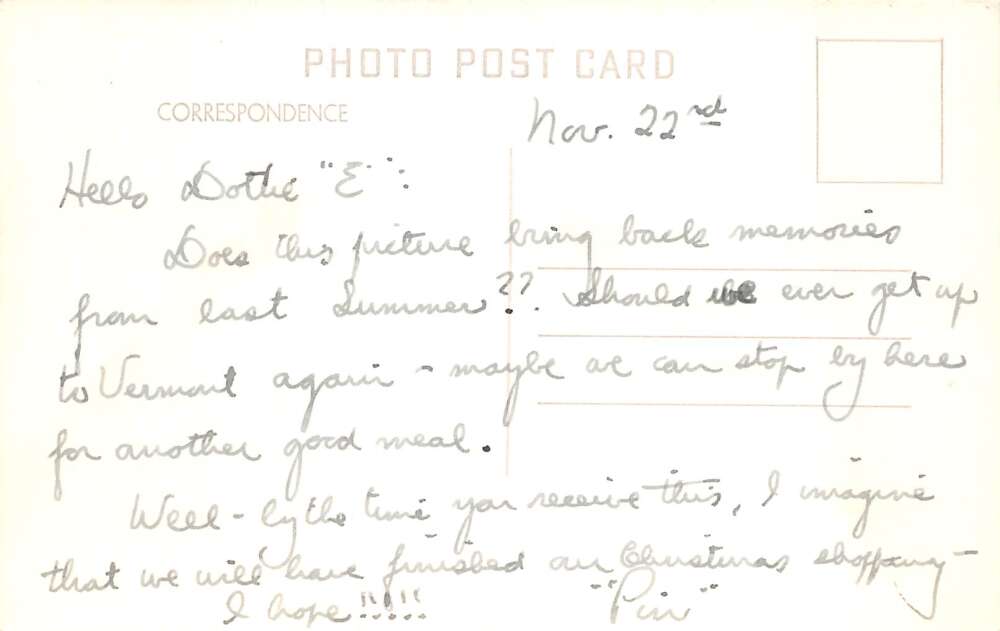 PHOTO POST CARD
CORRESPONDENCE
Nov. 22nd
Hello Dottie "E":
Does this picture bring back memories
from last Summer??. Should we ever get up
to Vermont again - maybe we can stop by here
for another good meal.
Well - by the time you receive this, I imagine
that we will have finished our Christmas shopping -
I hope!!!!!
"Pin"